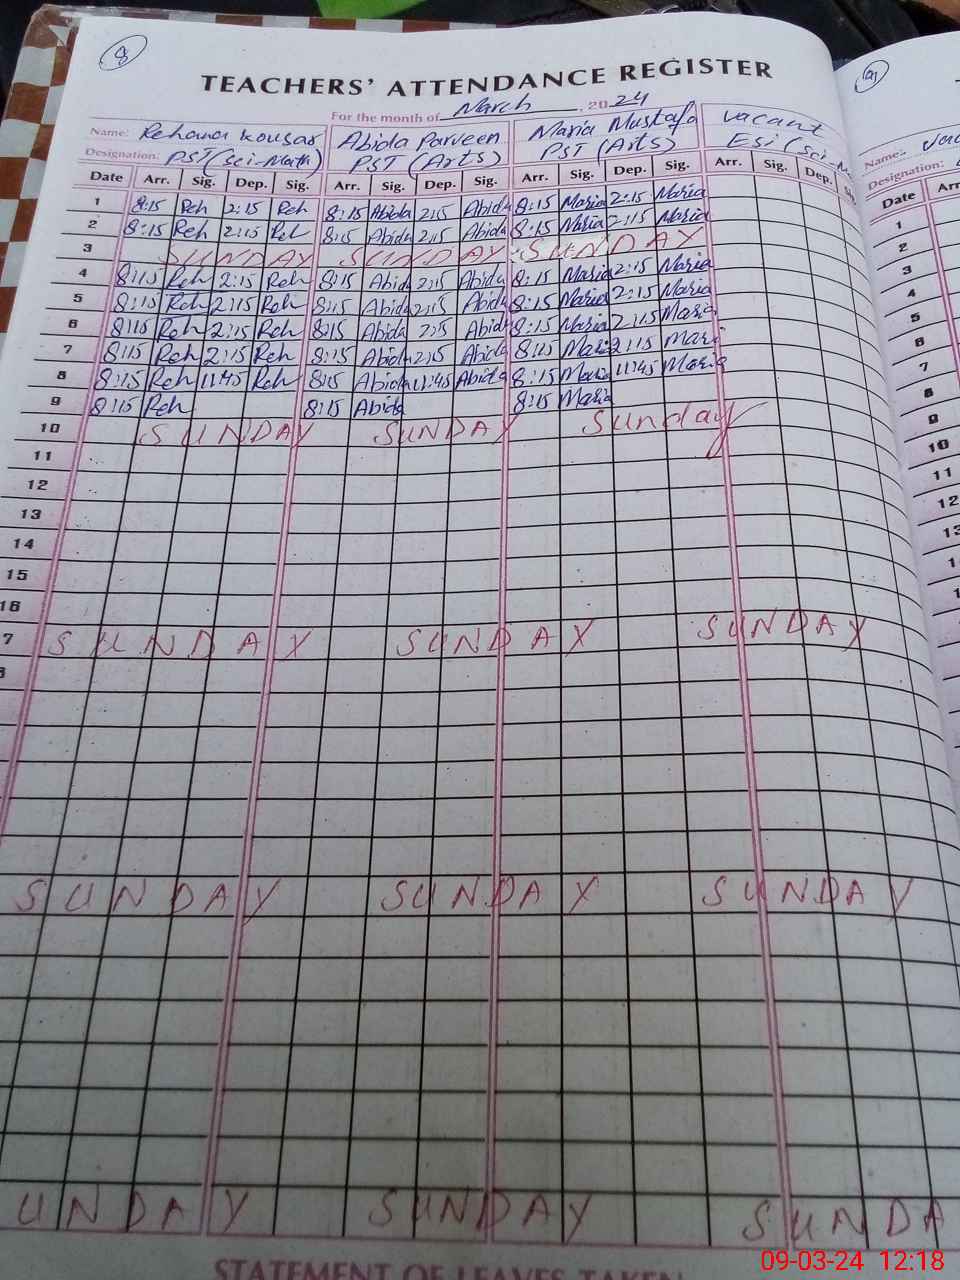 8
TEACHERS' ATTENDANCE REGISTER
For the month of March, 2024
Name: Rehana Kousar Abida Parveen Maria Mustafa Vacant
Designation: PST (Sci-Math) PST (Arts) PST (Arts) ESE (Sci-M
Date Arr. Sig. Dep. Sig. Arr. Sig. Dep. Sig. Arr. Sig. Dep. Sig. Arr. Sig. Dep.
1 8:15 Reh 2:15 Reh 8:15 Abida 2:15 Abida 8:15 Maria 2:15 Maria
2 8:15 Reh 2:15 Reh 8:15 Abida 2:15 Abida 8:15 Maria 2:15 Maria
3 SUNDAY SUNDAY SUNDAY
4 8:15 Reh 2:15 Reh 8:15 Abida 2:15 Abida 8:15 Maria 2:15 Maria
5 8:15 Reh 2:15 Reh 8:15 Abida 2:15 Abida 8:15 Maria 2:15 Maria
6 8:15 Reh 2:15 Reh 8:15 Abida 2:15 Abida 8:15 Maria 2:15 Maria
7 8:15 Reh 2:15 Reh 8:15 Abida 2:15 Abida 8:15 Maria 2:15 Mari
8 8:15 Reh 11:45 Reh 8:15 Abida 11:45 Abida 8:15 Maria 11:45 Maria
9 8:15 Reh 8:15 Abida 8:15 Maria
10 SUNDAY SUNDAY Sunday
11
12
13
14
15
16
7 SUNDAY SUNDAY SUNDAY
SUNDAY SUNDAY SUNDAY
UNDAY SUNDAY SUNDA
STATEMENT OF LEAVES TAKEN
9
Name:
Designation:
Date Arr
1
2
3
4
5
6
7
8
9
10
11
12
13
09-03-24 12:18